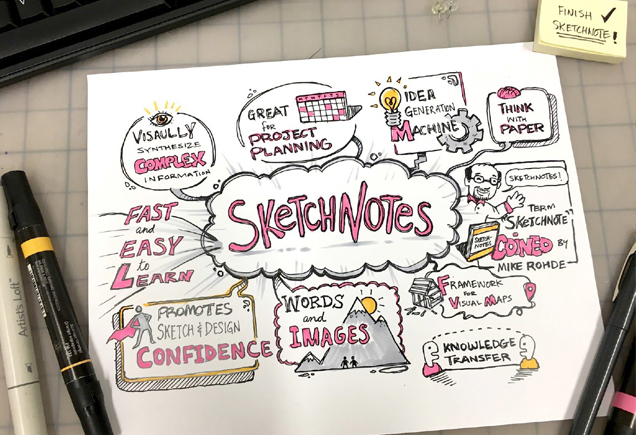 FINISH ✓
SKETCHNOTE!
VISAULLY
SYNTHESIZE
COMPLEX
INFORMATION
GREAT
FOR
PROJECT
PLANNING
IDEA
GENERATION
MACHINE
THINK
WITH
PAPER
FAST
and
EASY
to
LEARN
SKETCHNOTES
SKETCHNOTES!
TERM
"SKETCHNOTE"
COINED BY
MIKE ROHDE
SKETCH
NOTES
PROMOTES
SKETCH & DESIGN
CONFIDENCE
WORDS
and
IMAGES
FRAMEWORK
FOR
VISUAL MAPS
KNOWLEDGE
TRANSFER
Artist's Loft